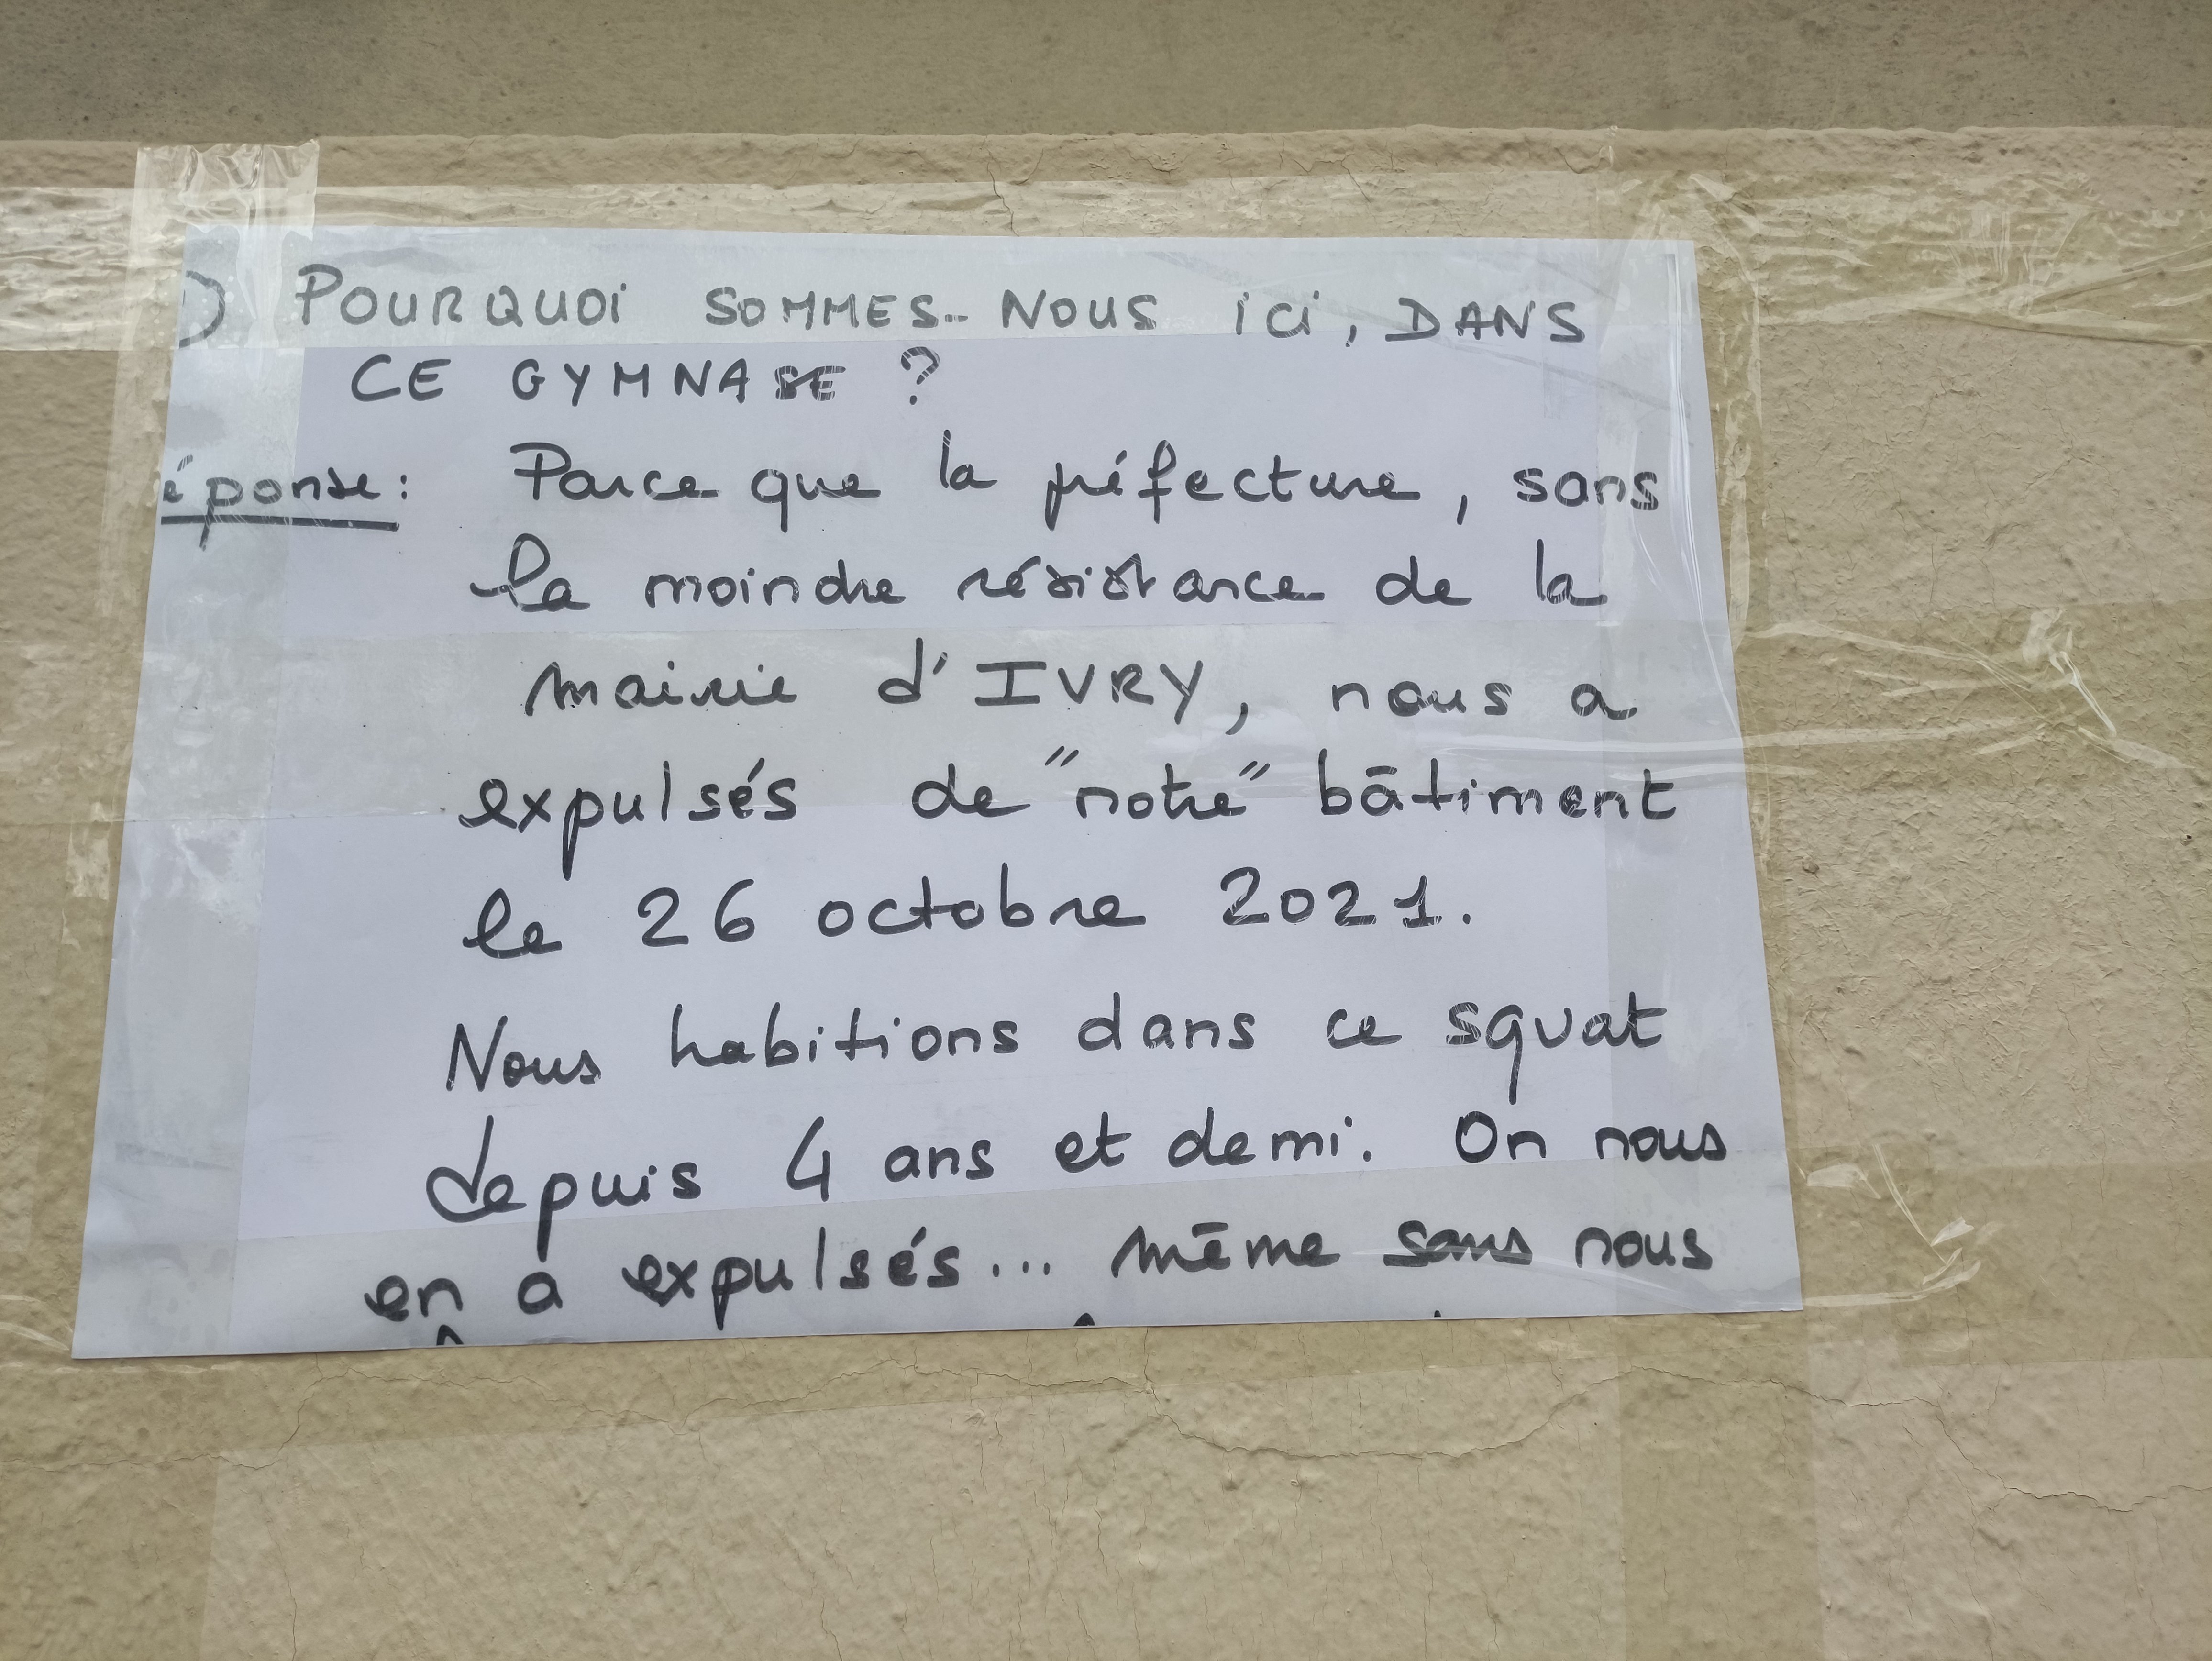 ) POURQUOI SOMMES-NOUS ICI, DANS
CE GYMNASE ?
éponse: Parce que la préfecture, sans
la moindre résistance de la
mairie d'IVRY, nous a
expulsés de "notre" bâtiment
le 26 octobre 2021.
Nous habitions dans ce squat
depuis 4 ans et demi. On nous
en a expulsés... même sans nous